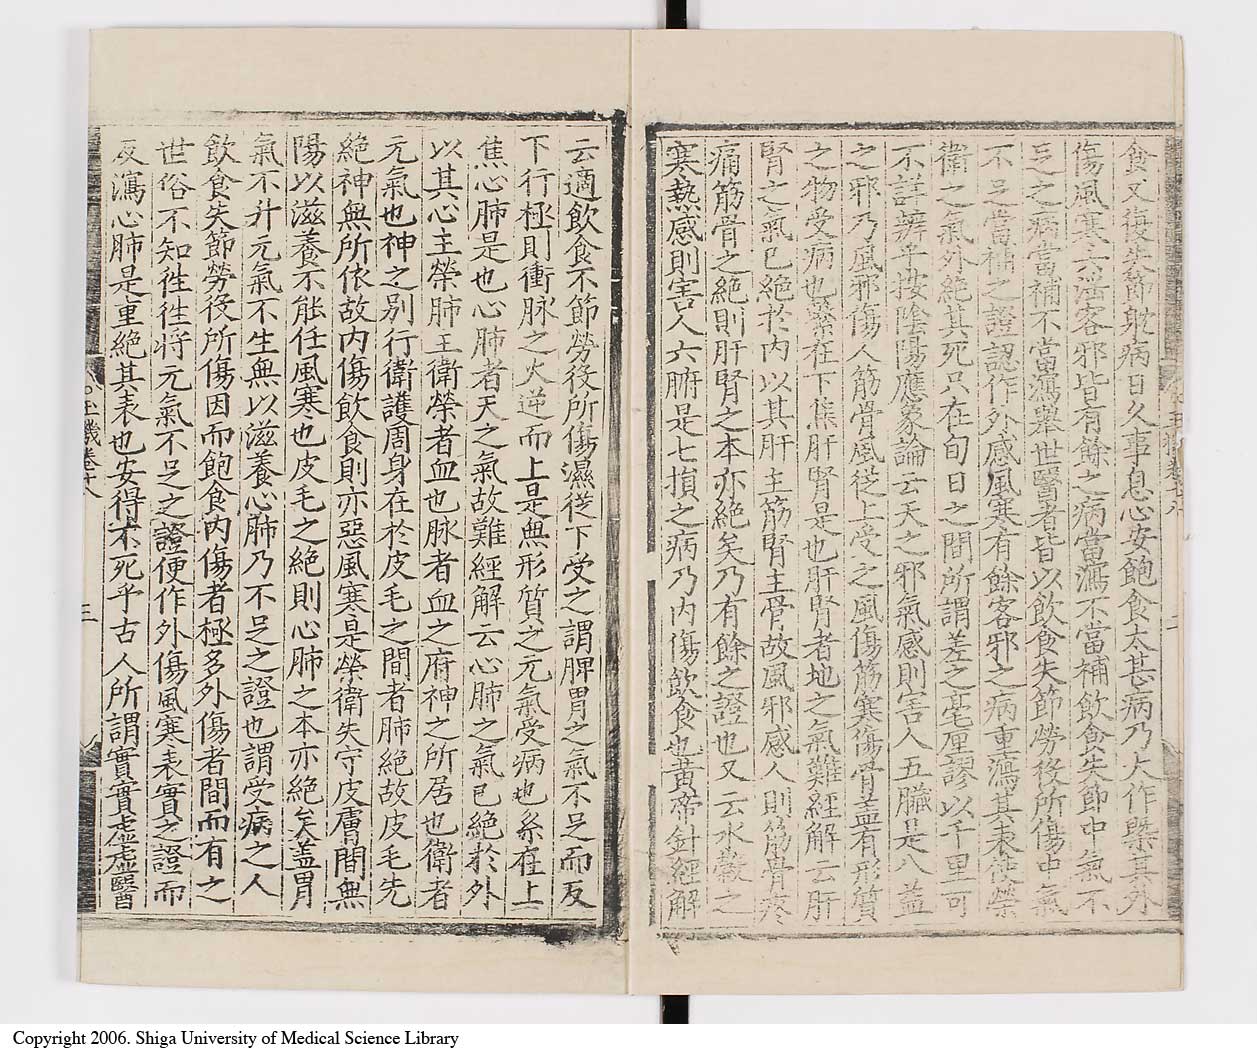 食又復失節躭病日久事息心安飽食太甚病乃大作槩其外
傷風寒六淫客邪皆有餘之病當瀉不當補飲食失節中氣不
足之病當補不當瀉舉世醫者皆以飲食失節勞役所傷中氣
不足當補之證認作外感風寒有餘客邪之病重瀉其表使榮
衛之氣外絶其死只在旬日之間所謂差之毫厘謬以千里可
不詳辨乎按陰陽應象論云天之邪氣感則害人五臟是八益
之邪乃風邪傷人筋骨風從上受之風傷筋寒傷骨盖有形質
之物受病也繫在下焦肝腎是也肝腎者地之氣難經解云肝
腎之氣已絶於內以其肝主筋腎主骨故風邪感人則筋骨疼
痛筋骨之絶則肝腎之本亦絶矣乃有餘之證也又云水穀之
寒熱感則害人六腑是七損之病乃內傷飲食也黃帝針經解
云適飲食不節勞役所傷濕從下受之謂脾胃之氣不足而反
下行極則衝脉之火逆而上是無形質之元氣受病也系在上
焦心肺是也心肺者天之氣故難經解云心肺之氣已絶於外
以其心主榮肺主衛榮者血也脉者血之府神之所居也衛者
元氣也神之别行衛護周身在於皮毛之間者肺絶故皮毛先
絶神無所依故內傷飲食則亦惡風寒是榮衛失守皮膚間無
陽以滋養不能任風寒也皮毛之絶則心肺之本亦絶矣盖胃
氣不升元氣不生無以滋養心肺乃不足之證也謂受病之人
飲食失節勞役所傷因而飽食內傷者極多外傷者間而有之
世俗不知徃徃將元氣不足之證便作外傷風寒表實之證而
反瀉心肺是重絶其表也安得不死乎古人所謂實實虛虛醫
玉機卷十八
三
Copyright 2006. Shiga University of Medical Science Library